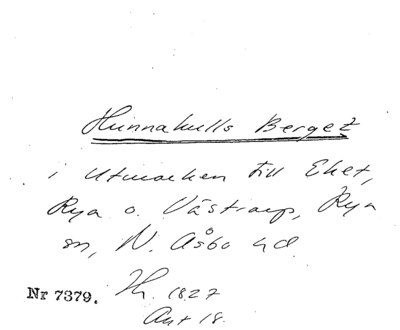 Hunnakulls Berget
i Utmarken till Eket,
Rya o. Västraup, Rya
sn, N. Åsbo hd
Nr 7379. Th. 1827
Akt 18.